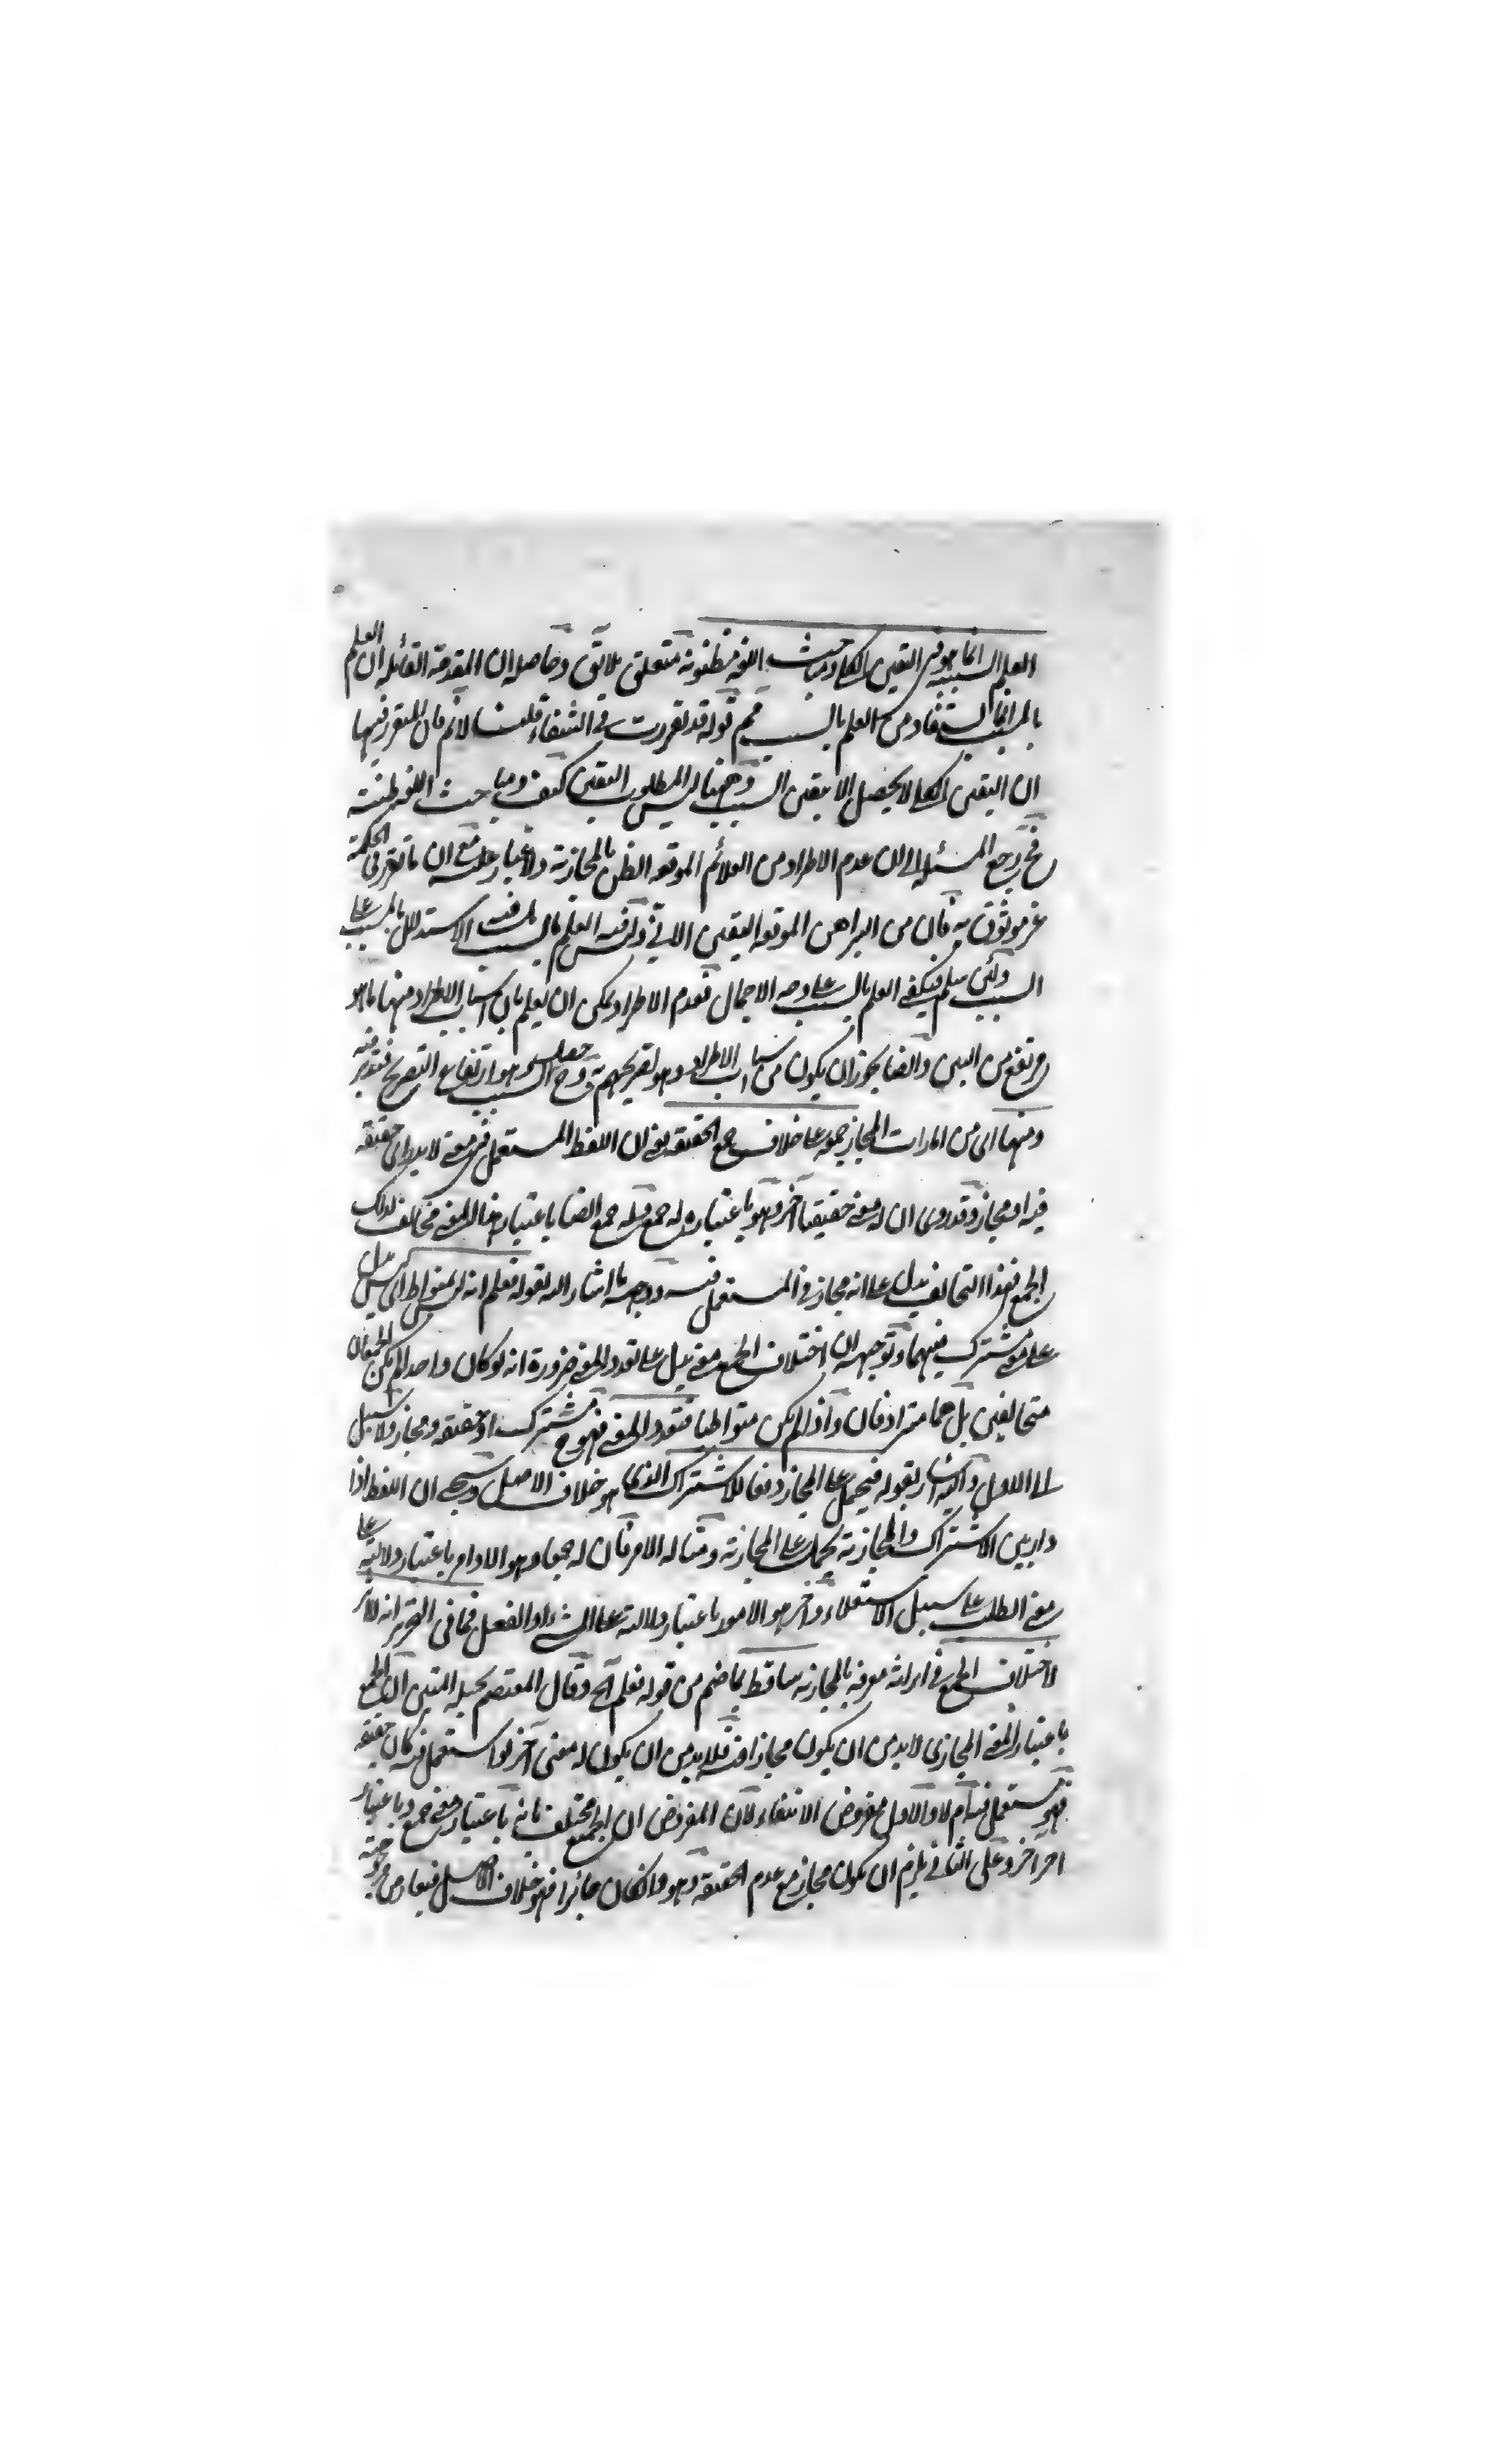 العلم بالسببية انما هو في اليقين الكلي ومباحث اللغة مظنونة متعلق بلا يتم وحاصله ان المقدمة القائلة ان العلم
بالمسبب انما يستفاد من العلم بالسبب مم قوله قد تقررت في الشفاء قلنا لانم فان المتقرر فيها
ان اليقين الكلي لا يحصل الا بتيقن السبب وههنا ليس المطلوب اليقين كيف ومباحث اللغة ظنية
فح يرجع المسئلة الى ان عدم الاطراد من العلائم الموقعة الظن بالمجازية ولا غبار عليه مع ان ما تقرر في الحكمة
غير موثوق به فان من البراهين الموقعة اليقين الاني وليس فيه العلم بالسبب بل فيه الاستدلال بالمسبب على
السبب ولئن سلم فيكفي العلم بالسبب على وجه الاجمال فعدم الاطراد يمكن ان يعلم بان اسباب الاطراد منها ما هو
مرتفع من البين وايضا يجوز ان يكون من اسباب الاطراد وهو تصريحهم به وح السبب وهو ارتفاع التصريح فتدبر فيه
ومنها اي من امارات المجاز جمعه على خلاف جمع الحقيقة يعني ان اللفظ المستعمل في معنى لا يدرى حقيقة
فيه او مجاز وقد دري ان له معنى حقيقيا آخر وهو باعتباره له جمع وله جمع ايضا باعتبار هذا المعنى مخالف لذلك
الجمع فهذا التخالف يدل على انه مجاز في المستعمل فيه ووجهه ما اشار اليه بقوله فعلم انه ليس بمتواط اي ليس يدل
على معنى مشترك بينهما وتوجيهه ان اختلاف الجمع معنى يدل على تعدد المعنى ضرورة انه لو كان واحدا لم يكن الجمعان
متخالفين بل هما مترادفان واذا لم يكن متواطيا فتعدد المعنى فهو ح مشترك او حقيقة ومجاز ولا سبيل
الى الاول واليه اشار بقوله فيحمل على المجاز دفعا للاشتراك الذي هو خلاف الاصل وسيجيء ان اللفظ اذا
دار بين الاشتراك والمجازية يحمل على المجازية ومثاله الامر فان له جمعا وهو الاوامر باعتبار دلالته على
معنى الطلب على سبيل الاستعلاء وآخر هو الامور باعتبار دلالته على الشيء او الفعل فما في التحرير انه لا اثر
لاختلاف الجمع في امارته معرفة بالمجازية ساقط بما ضم من قوله فعلم الخ وقال المعتصم بحبله المتين ان الجمع
باعتبار المعنى المجازي لا بد من ان يكون مجازا فيه فلا بد من ان يكون له معنى آخر لو استعمل فيه كان حقيقة
فهو مستعمل فيه ام لا والاول مفروض الانتفاء لان المفروض ان الجمع مختلف فانه باعتبار معنى جمع وباعتبار
امر آخر وعلى الثاني يلزم ان يكون مجاز مع عدم الحقيقة وهو وان كان جائزا فهو خلاف الاصل فيعارض